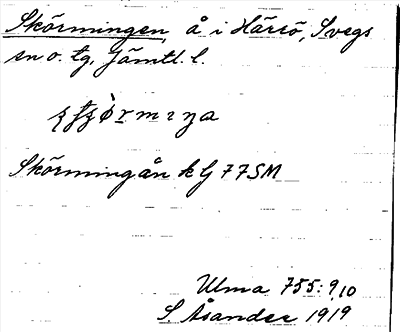 Skörmingen, å i Härsö, Svegs
sn o. tg. Jämtl. l.
Skörmingån kG 77SM
Ulma 755: 9,10
S. Åsander 1919